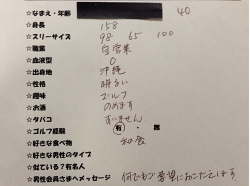 ☆なまえ・年齢 40
☆身長 158
☆スリーサイズ 98 65 100
☆職業 自営業
☆血液型 O
☆出身地 沖縄
☆性格 明るい
☆趣味 ゴルフ
☆お酒 のめます
☆タバコ すいません
☆ゴルフ経験 有・無
☆好きな食べ物 和食
☆好きな男性のタイプ
☆似ている?有名人
☆男性会員さまへメッセージ 何でもご要望におこたえします。